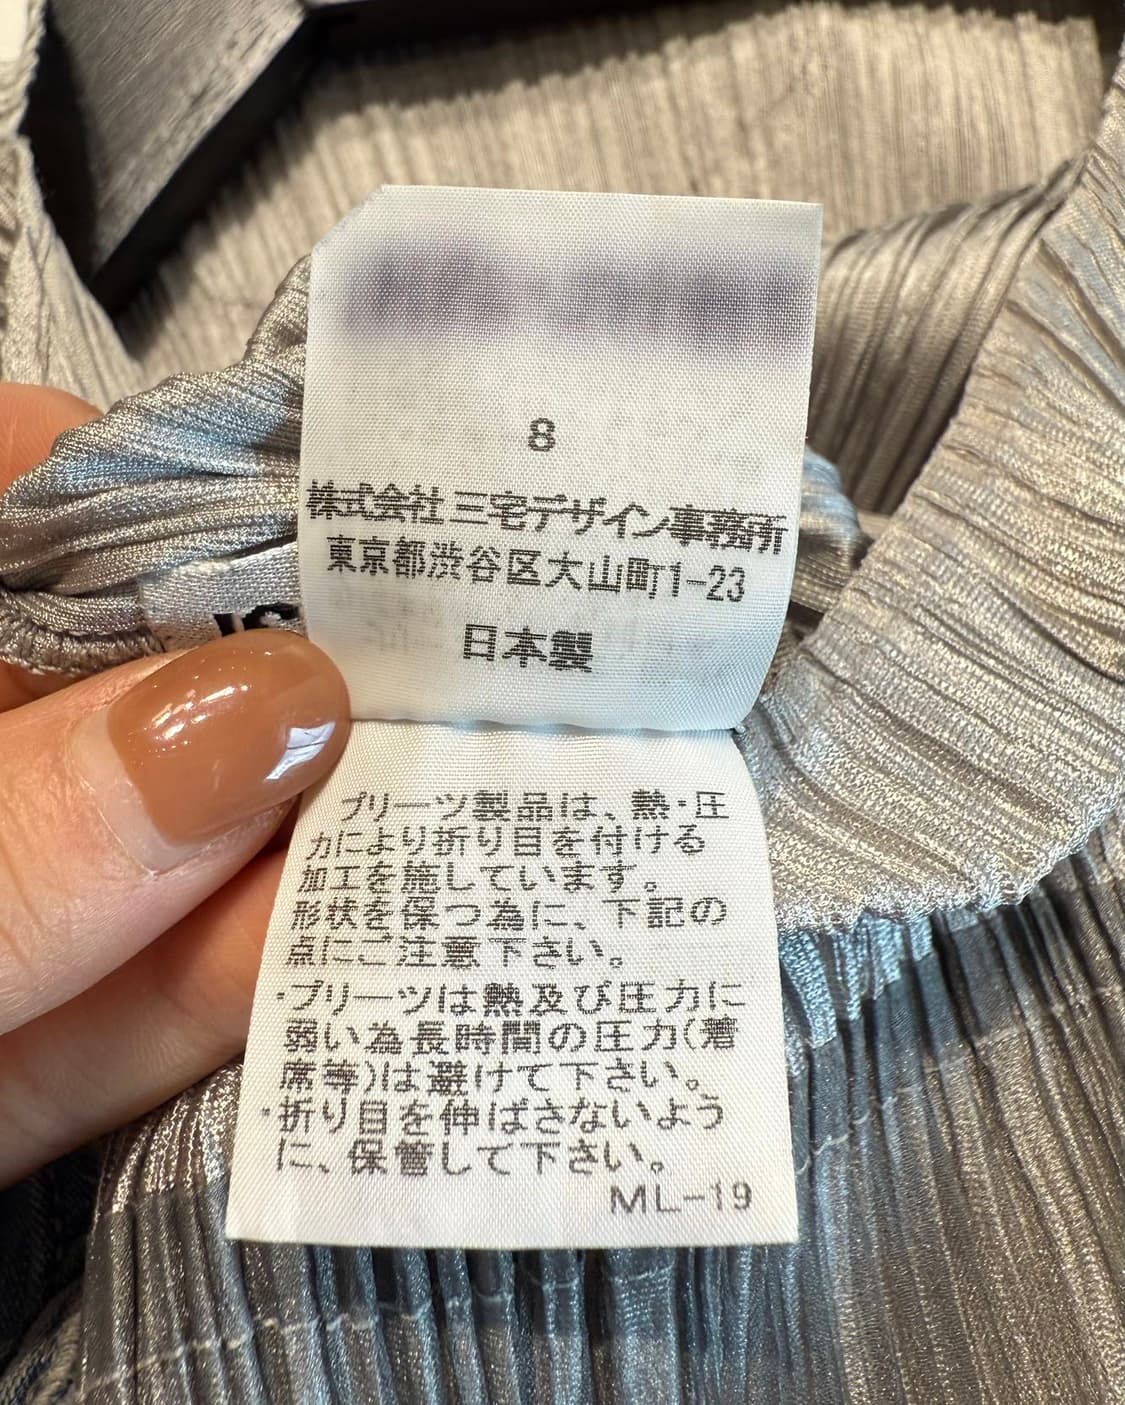 8
株式会社 三宅デザイン事務所
東京都渋谷区大山町1-23
日本製
プリーツ製品は、熱・圧
力により折り目を付ける
加工を施しています。
形状を保つ為に、下記の
点にご注意下さい。
・プリーツは熱及び圧力に
弱い為長時間の圧力(着
席等)は避けて下さい。
・折り目を伸ばさないよう
に、保管して下さい。
ML-19